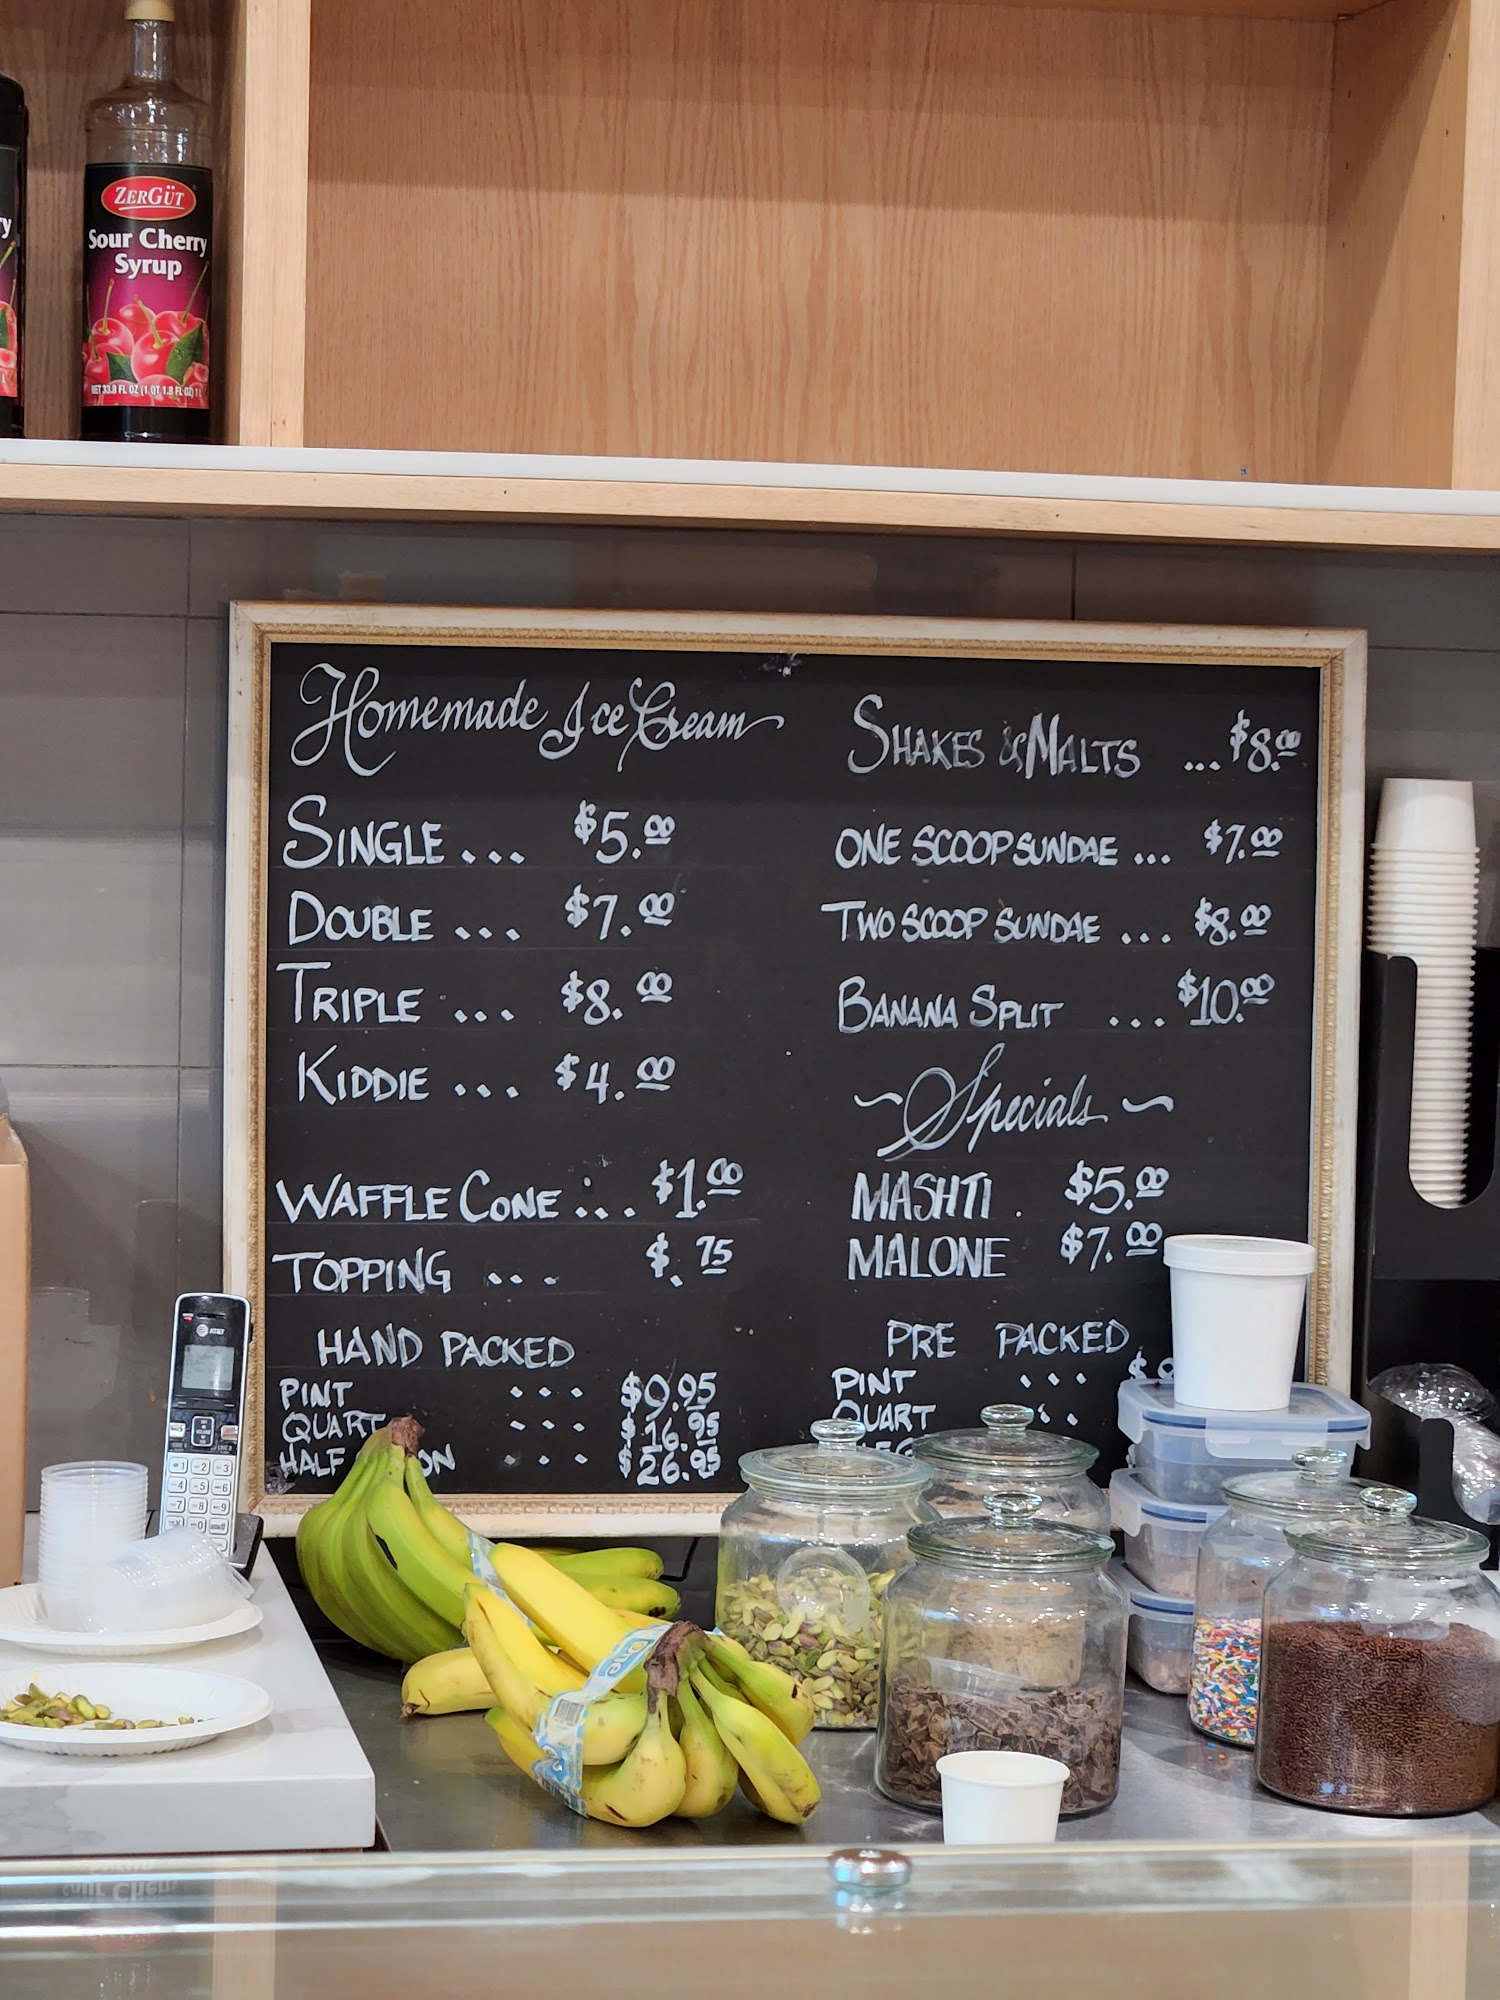 ZERGÜT
Sour Cherry
Syrup
NET 33.8 FL OZ (1 QT 1.8 FL OZ) 1 L
Homemade Ice Cream
SINGLE ... $5.00
DOUBLE ... $7.00
TRIPLE ... $8.00
KIDDIE ... $4.00
WAFFLE CONE ... $1.00
TOPPING ... $.75
HAND PACKED
PINT ... $9.95
QUART ... $16.95
HALF ... $26.95
SHAKES & MALTS ... $8.00
ONE SCOOP SUNDAE ... $7.00
TWO SCOOP SUNDAE ... $8.00
BANANA SPLIT ... $10.00
~Specials~
MASHTI . $5.00
MALONE $7.00
PRE PACKED
PINT ... $
QUART
AT&T
One